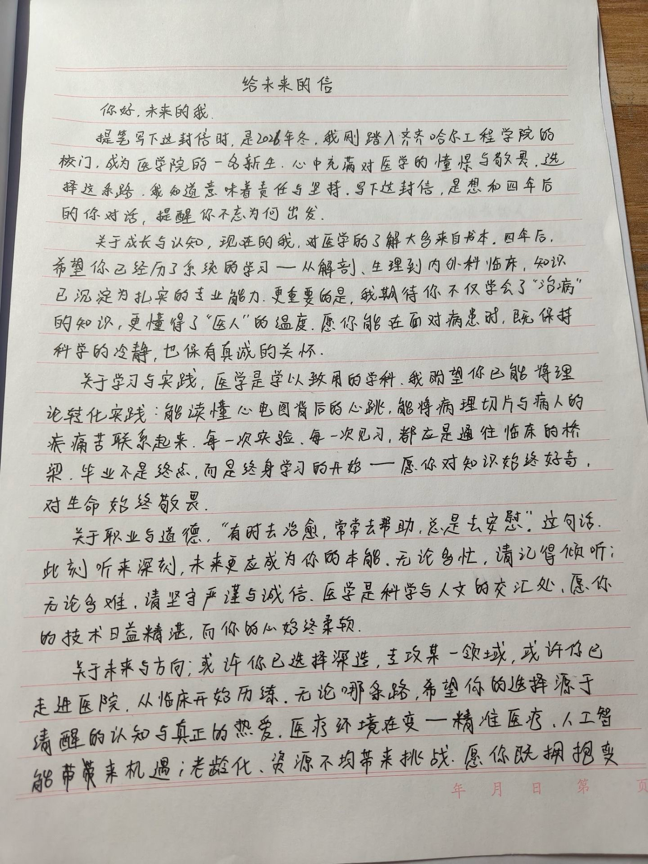 给未来的信
你好，未来的我。
提笔写下这封信时，是2026年冬，我刚踏入齐齐哈尔工程学院的
校门，成为医学院的一名新生。心中充满对医学的憧憬与敬畏。选
择这条路，我知道意味着责任与坚持。写下这封信，是想和四年后
的你对话，提醒你不忘为何出发。
关于成长与认知，现在的我，对医学的了解大多来自书本。四年后，
希望你已经历了系统的学习——从解剖、生理到内外科临床，知识
已沉淀为扎实的专业能力。更重要的是，我期待你不仅学会了“治病”
的知识，更懂得了“医人”的温度。愿你能在面对病患时，既保持
科学的冷静，也保有真诚的关怀。
关于学习与实践，医学是学以致用的学科。我盼望你已能将理
论转化实践：能读懂心电图背后的心跳，能将病理切片与病人的
疾痛苦联系起来。每一次实验、每一次见习，都应是通往临床的桥
梁。毕业不是终点，而是终身学习的开始——愿你对知识始终好奇，
对生命始终敬畏。
关于职业与道德，“有时去治愈，常常去帮助，总是去安慰”。这句话，
此刻听来深刻，未来更应成为你的本能。无论多忙，请记得倾听；
无论多难，请坚守严谨与诚信。医学是科学与人文的交汇处，愿你
的技术日益精湛，而你的心始终柔软。
关于未来与方向；或许你已选择深造，主攻某一领域，或许你已
走进医院，从临床开始历练。无论哪条路，希望你的选择源于
清醒的认知与真正的热爱。医疗环境在变——精准医疗、人工智
能带来机遇；老龄化、资源不均带来挑战。愿你既拥抱变
年 月 日 第 页